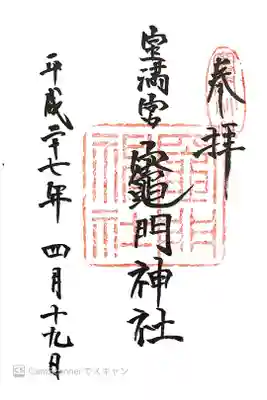 奉拝
宝満宮
竈門神社
平成二十七年 四月十九日
CamScanner でスキャン